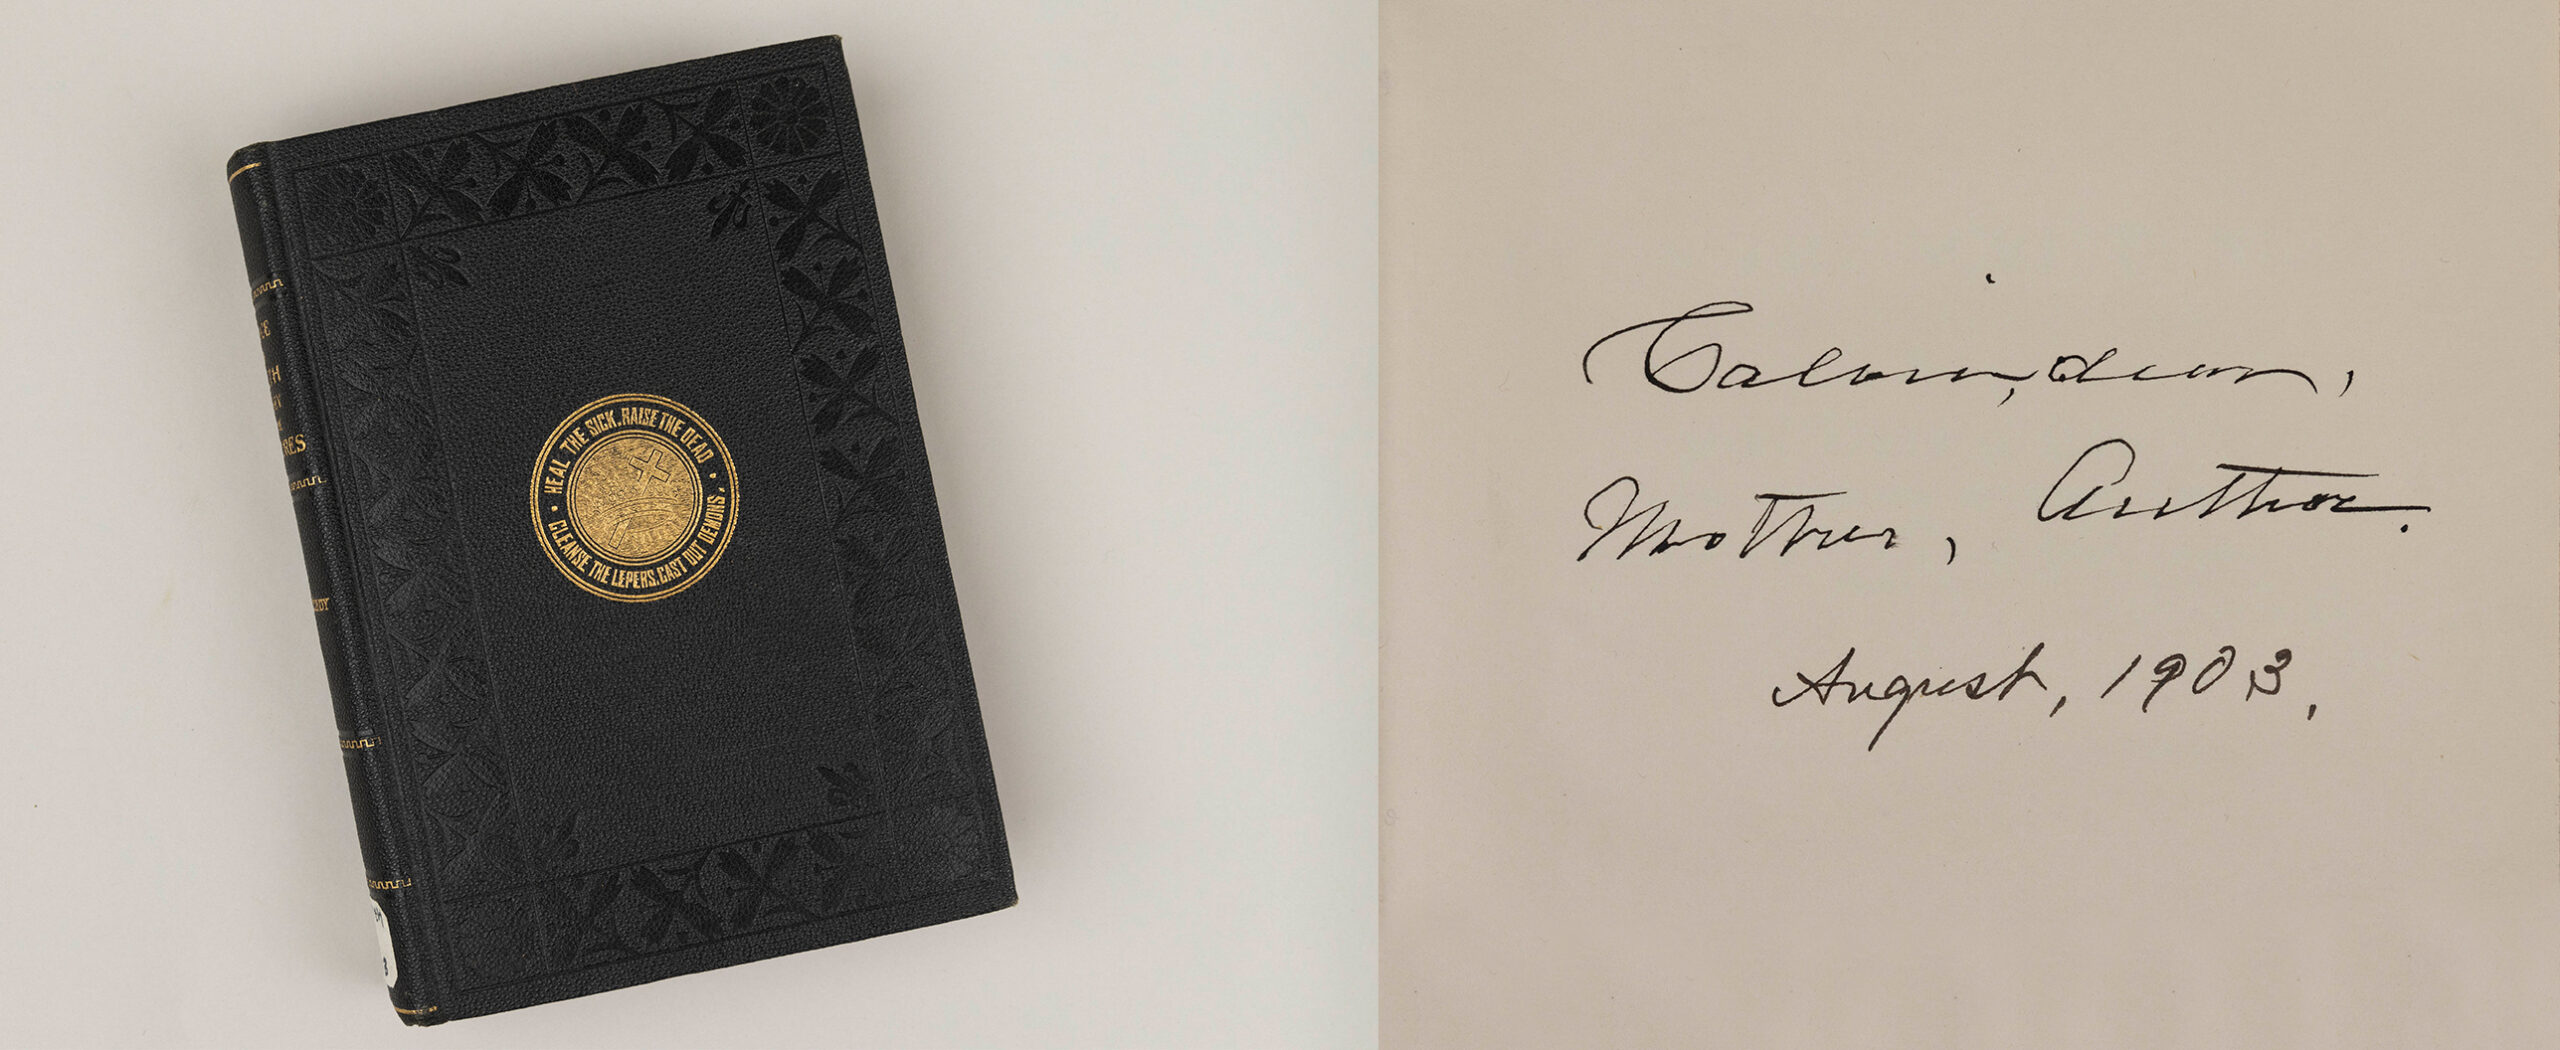 CE
TH
RES
EDDY
HEAL THE SICK. RAISE THE DEAD
CLEANSE THE LEPERS. CAST OUT DEMONS.
3
Calvin, dear,
Mother, Author.
August, 1903,